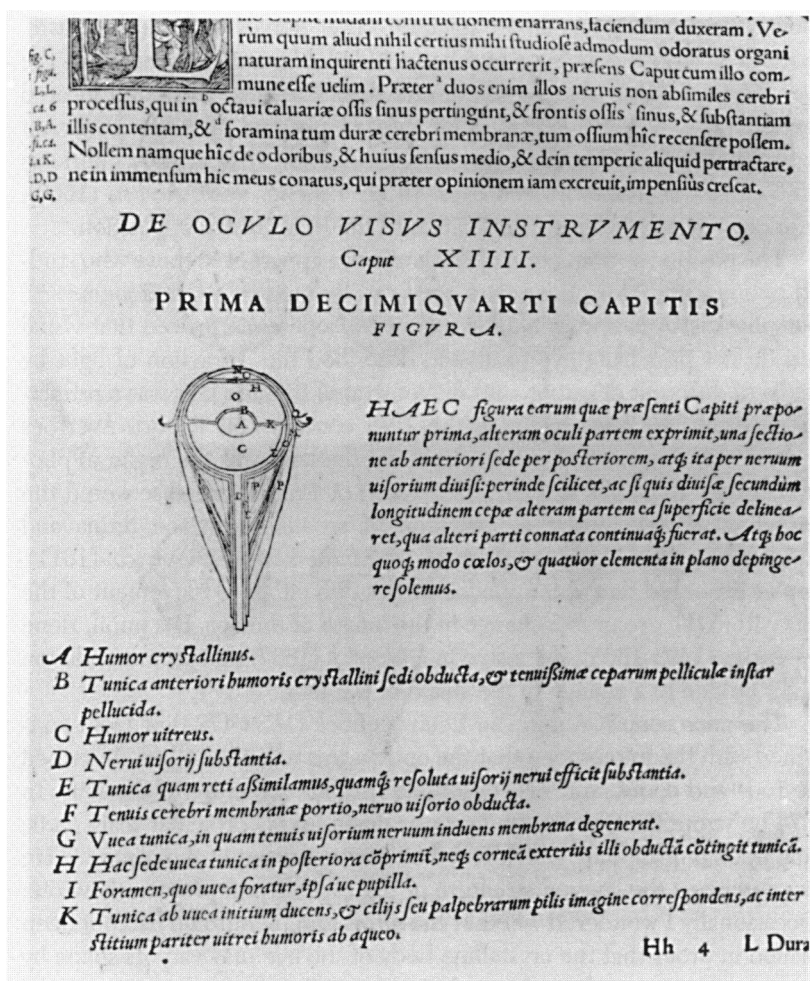 Caput nudam contructionem enarrans, faciendum duxeram. Ve-
rùm quum aliud nihil certius mihi ſtudioſè admodum odoratus organi
naturam inquirenti hactenus occurrerit, præſens Caput cum illo com-
mune eſſe uelim. Præter ᵃ duos enim illos neruis non abſimiles cerebri
proceſſus, qui in ᵇ octaui caluariæ oſſis ſinus pertingunt, & frontis oſſis ᶜ ſinus, & ſubſtantiam
illis contentam, & ᵈ foramina tum duræ cerebri membranæ, tum oſſium hîc recenſere poſſem.
Nollem namque hîc de odoribus, & huius ſenſus medio, & dein temperie aliquid pertractare,
ne in immenſum hic meus conatus, qui præter opinionem iam excreuit, impenſiùs creſcat.
fig. C,
L, L.
ca. 6
B, A.
K.
D, D
G, G.
DE OCVLO VISVS INSTRVMENTO.
Caput XIIII.
PRIMA DECIMIQVARTI CAPITIS
FIGVRA.
N
H
O
B
A
K
C
L
P
P
HAEC figura earum quæ præſenti Capiti præpo-
nuntur prima, alteram oculi partem exprimit, una ſectio-
ne ab anteriori ſede per poſteriorem, atq́; ita per neruum
uiſorium diuiſi: perinde ſcilicet, ac ſi quis diuiſæ ſecundùm
longitudinem cepæ alteram partem ea ſuperficie delinea-
ret, qua alteri parti connata continuaq́; fuerat. Atq́; hoc
quoq́; modo cœlos, & quatuor elementa in plano depinge-
re ſolemus.
A Humor cryſtallinus.
B Tunica anteriori humoris cryſtallini ſedi obducta, & tenuißimæ ceparum pelliculæ inſtar
pellucida.
C Humor uitreus.
D Nerui uiſorij ſubſtantia.
E Tunica quam reti aßimilamus, quamq́; reſoluta uiſorij nerui efficit ſubſtantia.
F Tenuis cerebri membranæ portio, neruo uiſorio obducta.
G Vuea tunica, in quam tenuis uiſorium neruum induens membrana degenerat.
H Hac ſede uuea tunica in poſteriora cõprimit̃, neq́; corneã exteriùs illi obductã cõtingit tunicã.
I Foramen, quo uuea foratur, ipſa´ue pupilla.
K Tunica ab uuea initium ducens, & cilijs ſeu palpebrarum pilis imagine correſpondens, ac inter
ſtitium pariter uitrei humoris ab aqueo.
Hh 4 L Dura